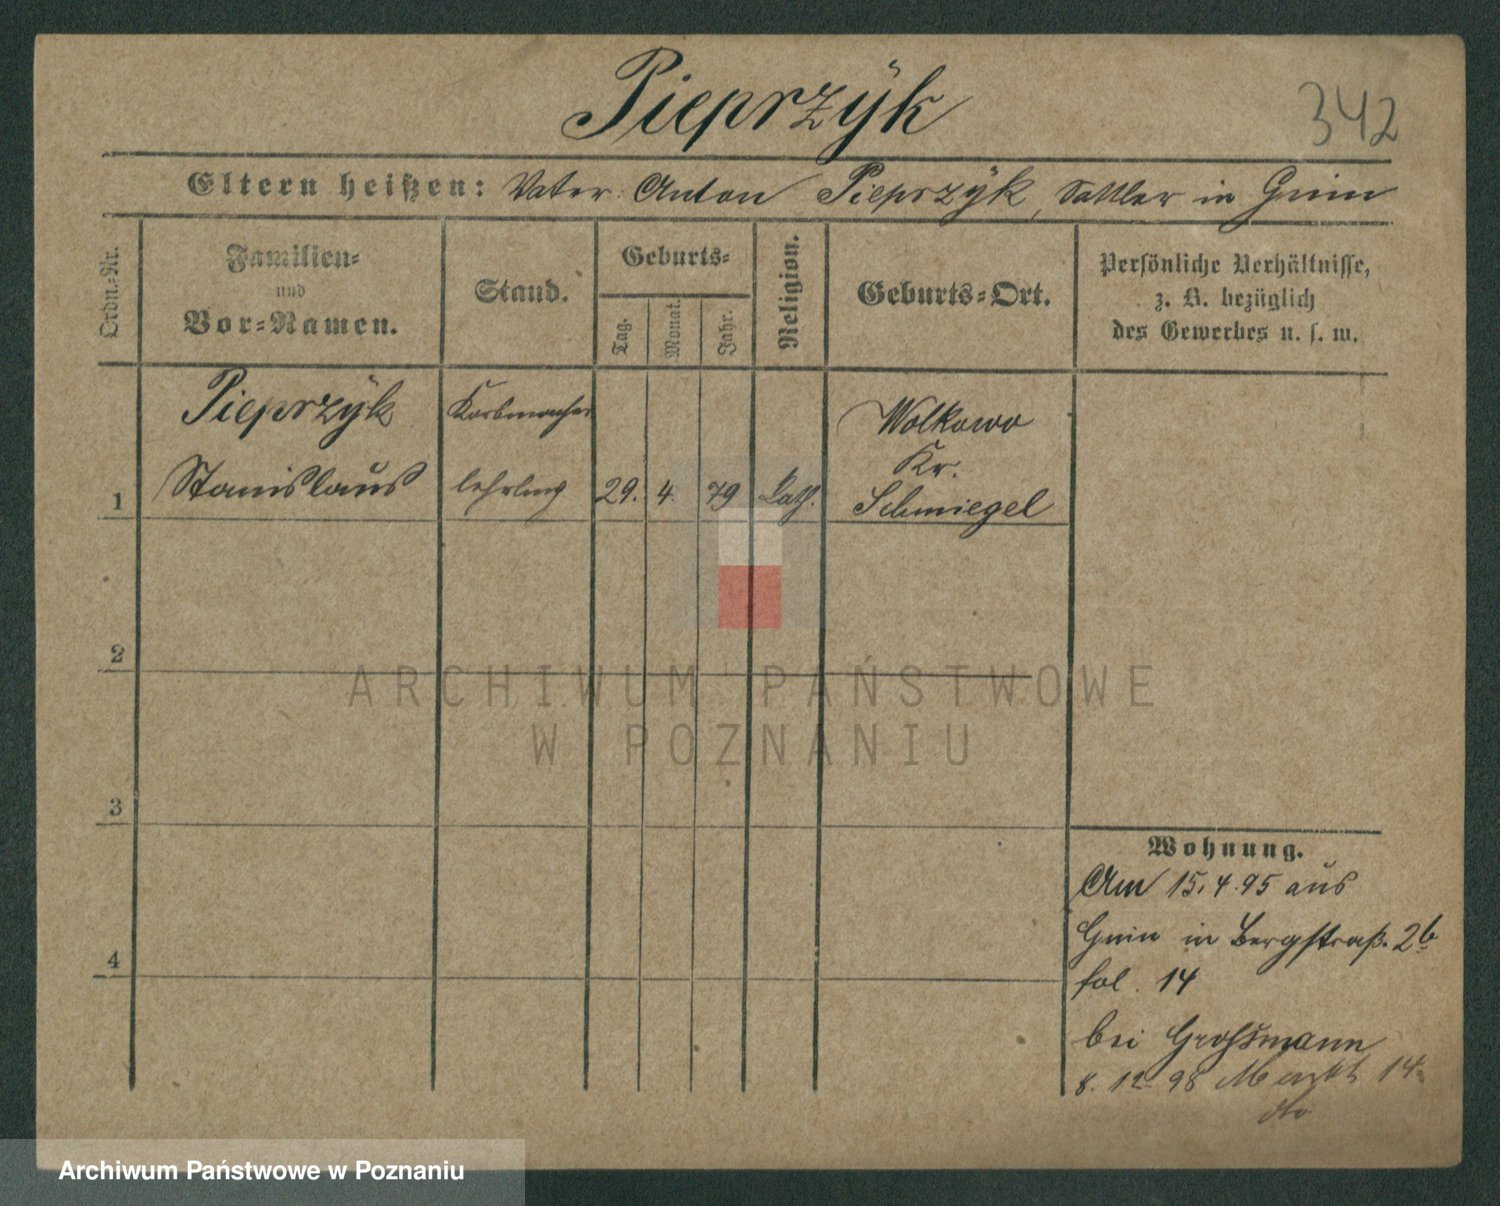 Pieprzÿk
342
Eltern heißen: Vater Anton Pieprzÿk, Sattler in Gnin
Ordn.-Nr.
Familien-
und
Vor-Namen.
Stand.
Geburts-
Tag.
Monat.
Jahr.
Religion.
Geburts-Ort.
Persönliche Verhältnisse,
z. B. bezüglich
des Gewerbes u. s. w.
Pieprzÿk Korbmacher Wolkowo
Kr.
1 Stanislaus lehrling 29. 4. 79 kath. Schmiegel
2
3
4
Wohnung.
Am 15.4.95 aus
Gnin in Bergstraß. 2b
fol. 14
bei Großmann
8. 12. 98 Markt 14
dto
ARCHIWUM PAŃSTWOWE
W POZNANIU
Archiwum Państwowe w Poznaniu